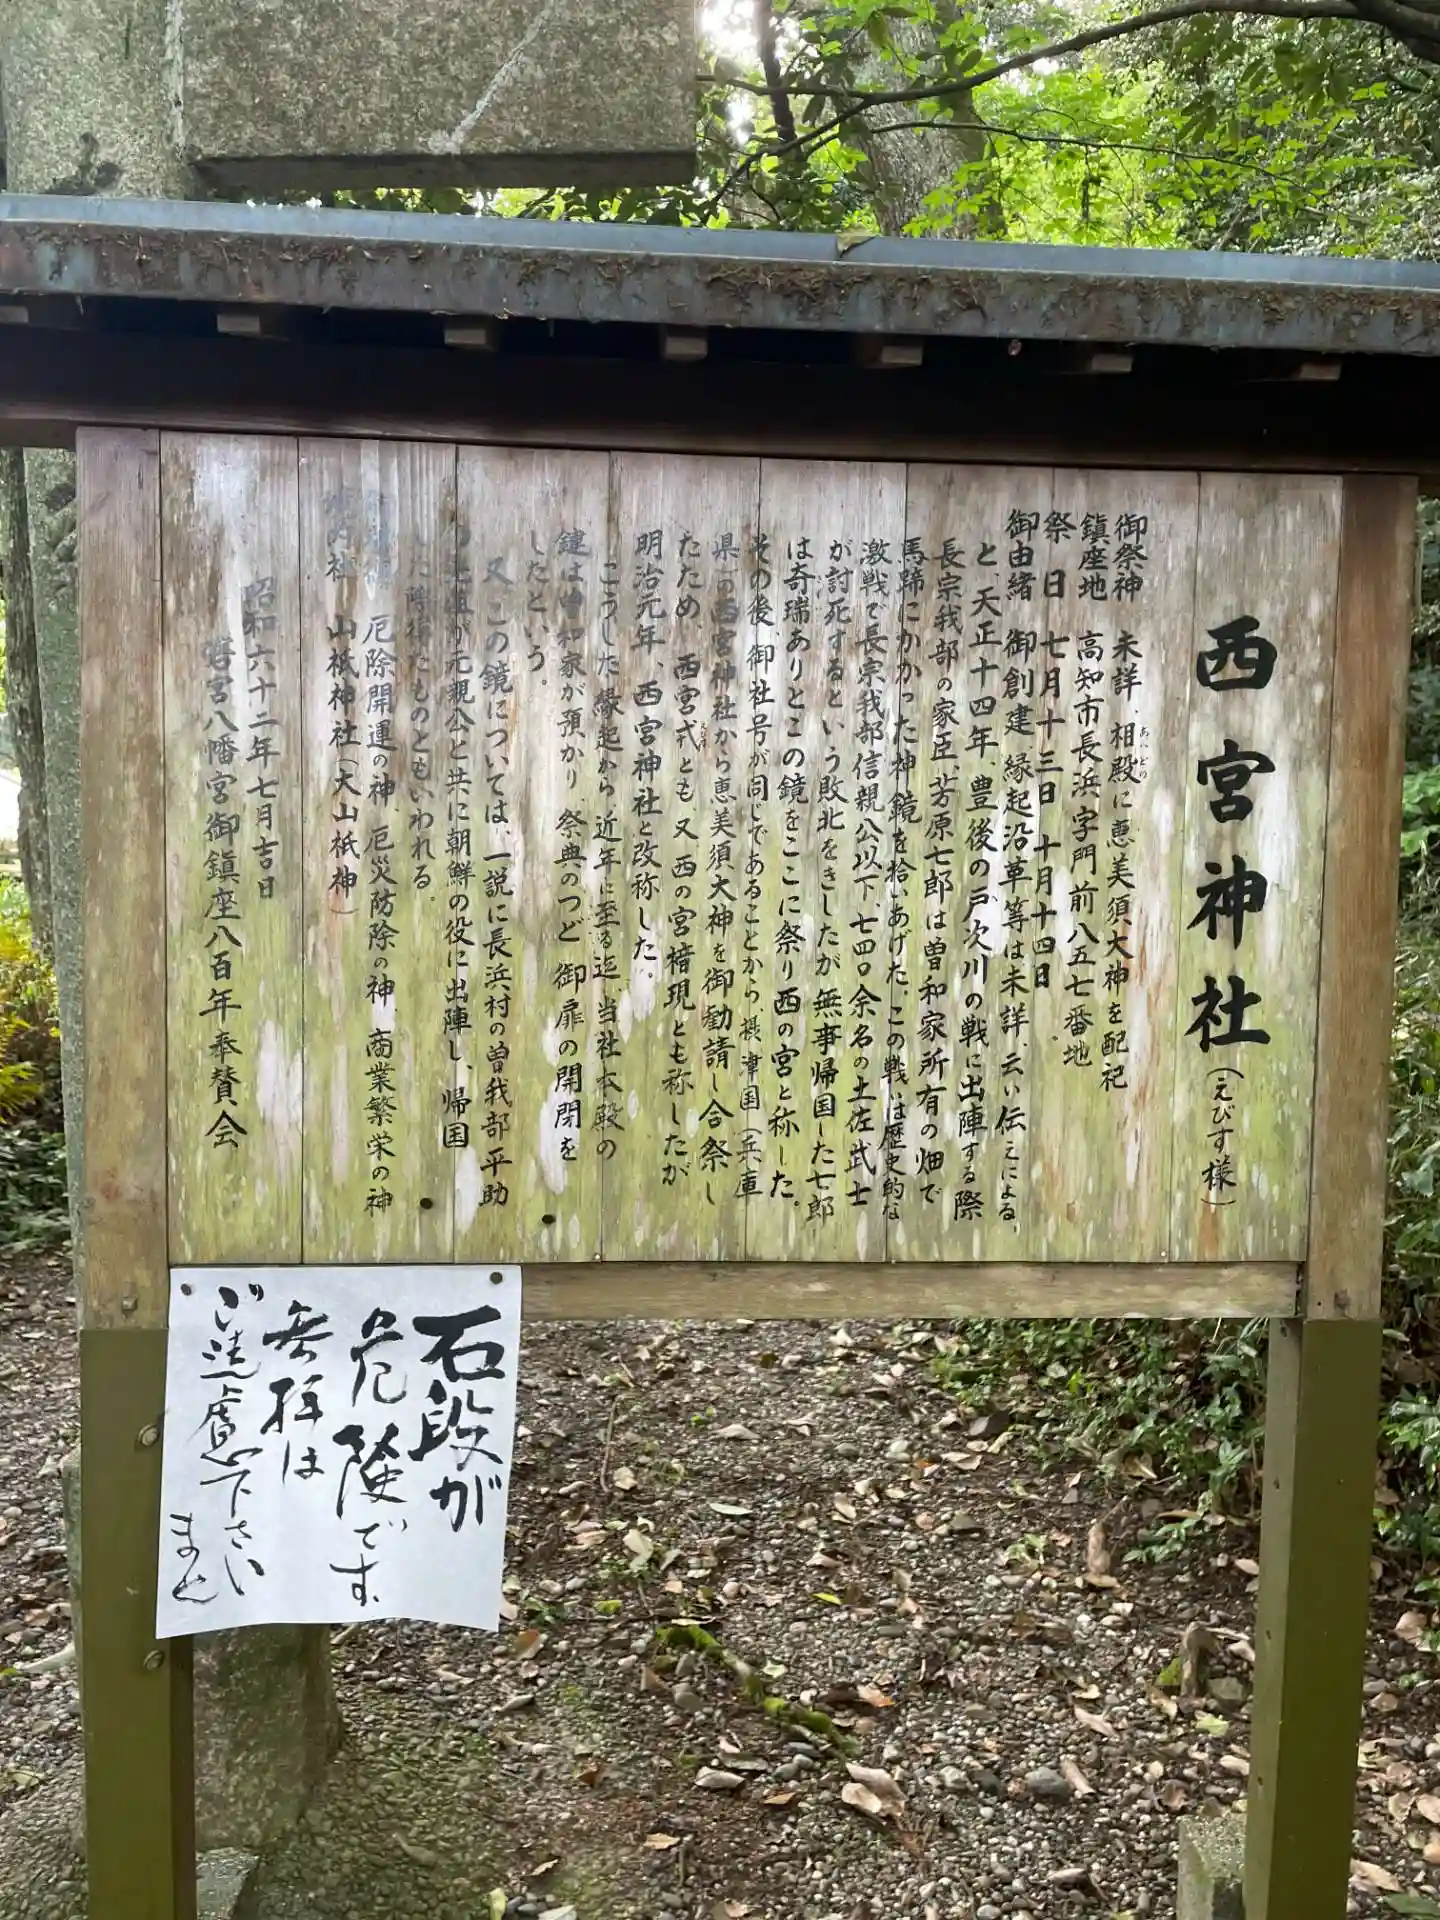 西宮神社(えびす様)
御祭神 未詳、相殿に恵美須大神を配祀
あいどの
鎮座地 高知市長浜字門前八五七番地
祭日 七月十三日 十月十四日
御由緒 御創建 縁起沿革等は未詳、云い伝えによる
と、天正十四年、豊後の戸次川の戦に出陣する際
長宗我部の家臣、芳原七郎は曽和家所有の畑で
馬蹄にかかった神鏡を拾いあげた。この戦は歴史的な
激戦で長宗我部信親公以下、七四〇余名の土佐武士
が討死するという敗北をきしたが無事帰国した七郎
は奇瑞ありとこの鏡をここに祭り西の宮と称した。
その後、御社号が同じであることから、摂津国(兵庫
県)の西宮神社から恵美須大神を御勧請し合祭し
たため、西宮弐とも、又、西の宮 現とも称したが
明治元年、西宮神社と改称した。
こうした縁起から、近年に至る迄、当社本殿の
鍵は 和家が預かり、祭典のつど御扉の開閉を
したという。
又、この鏡については、一説に長浜村の曽我部平助
の が元親公と共に朝鮮の役に出陣し、帰国
た 来たものともいわれる。
厄除開運の神、厄災防除の神、商業繁栄の神
社 山祇神社(大山祇神)
昭和六十二年七月吉日
宮八幡宮御鎮座八百年奉賛会
石段が
危険です、
参拝は
ご遠慮下さい
ませ